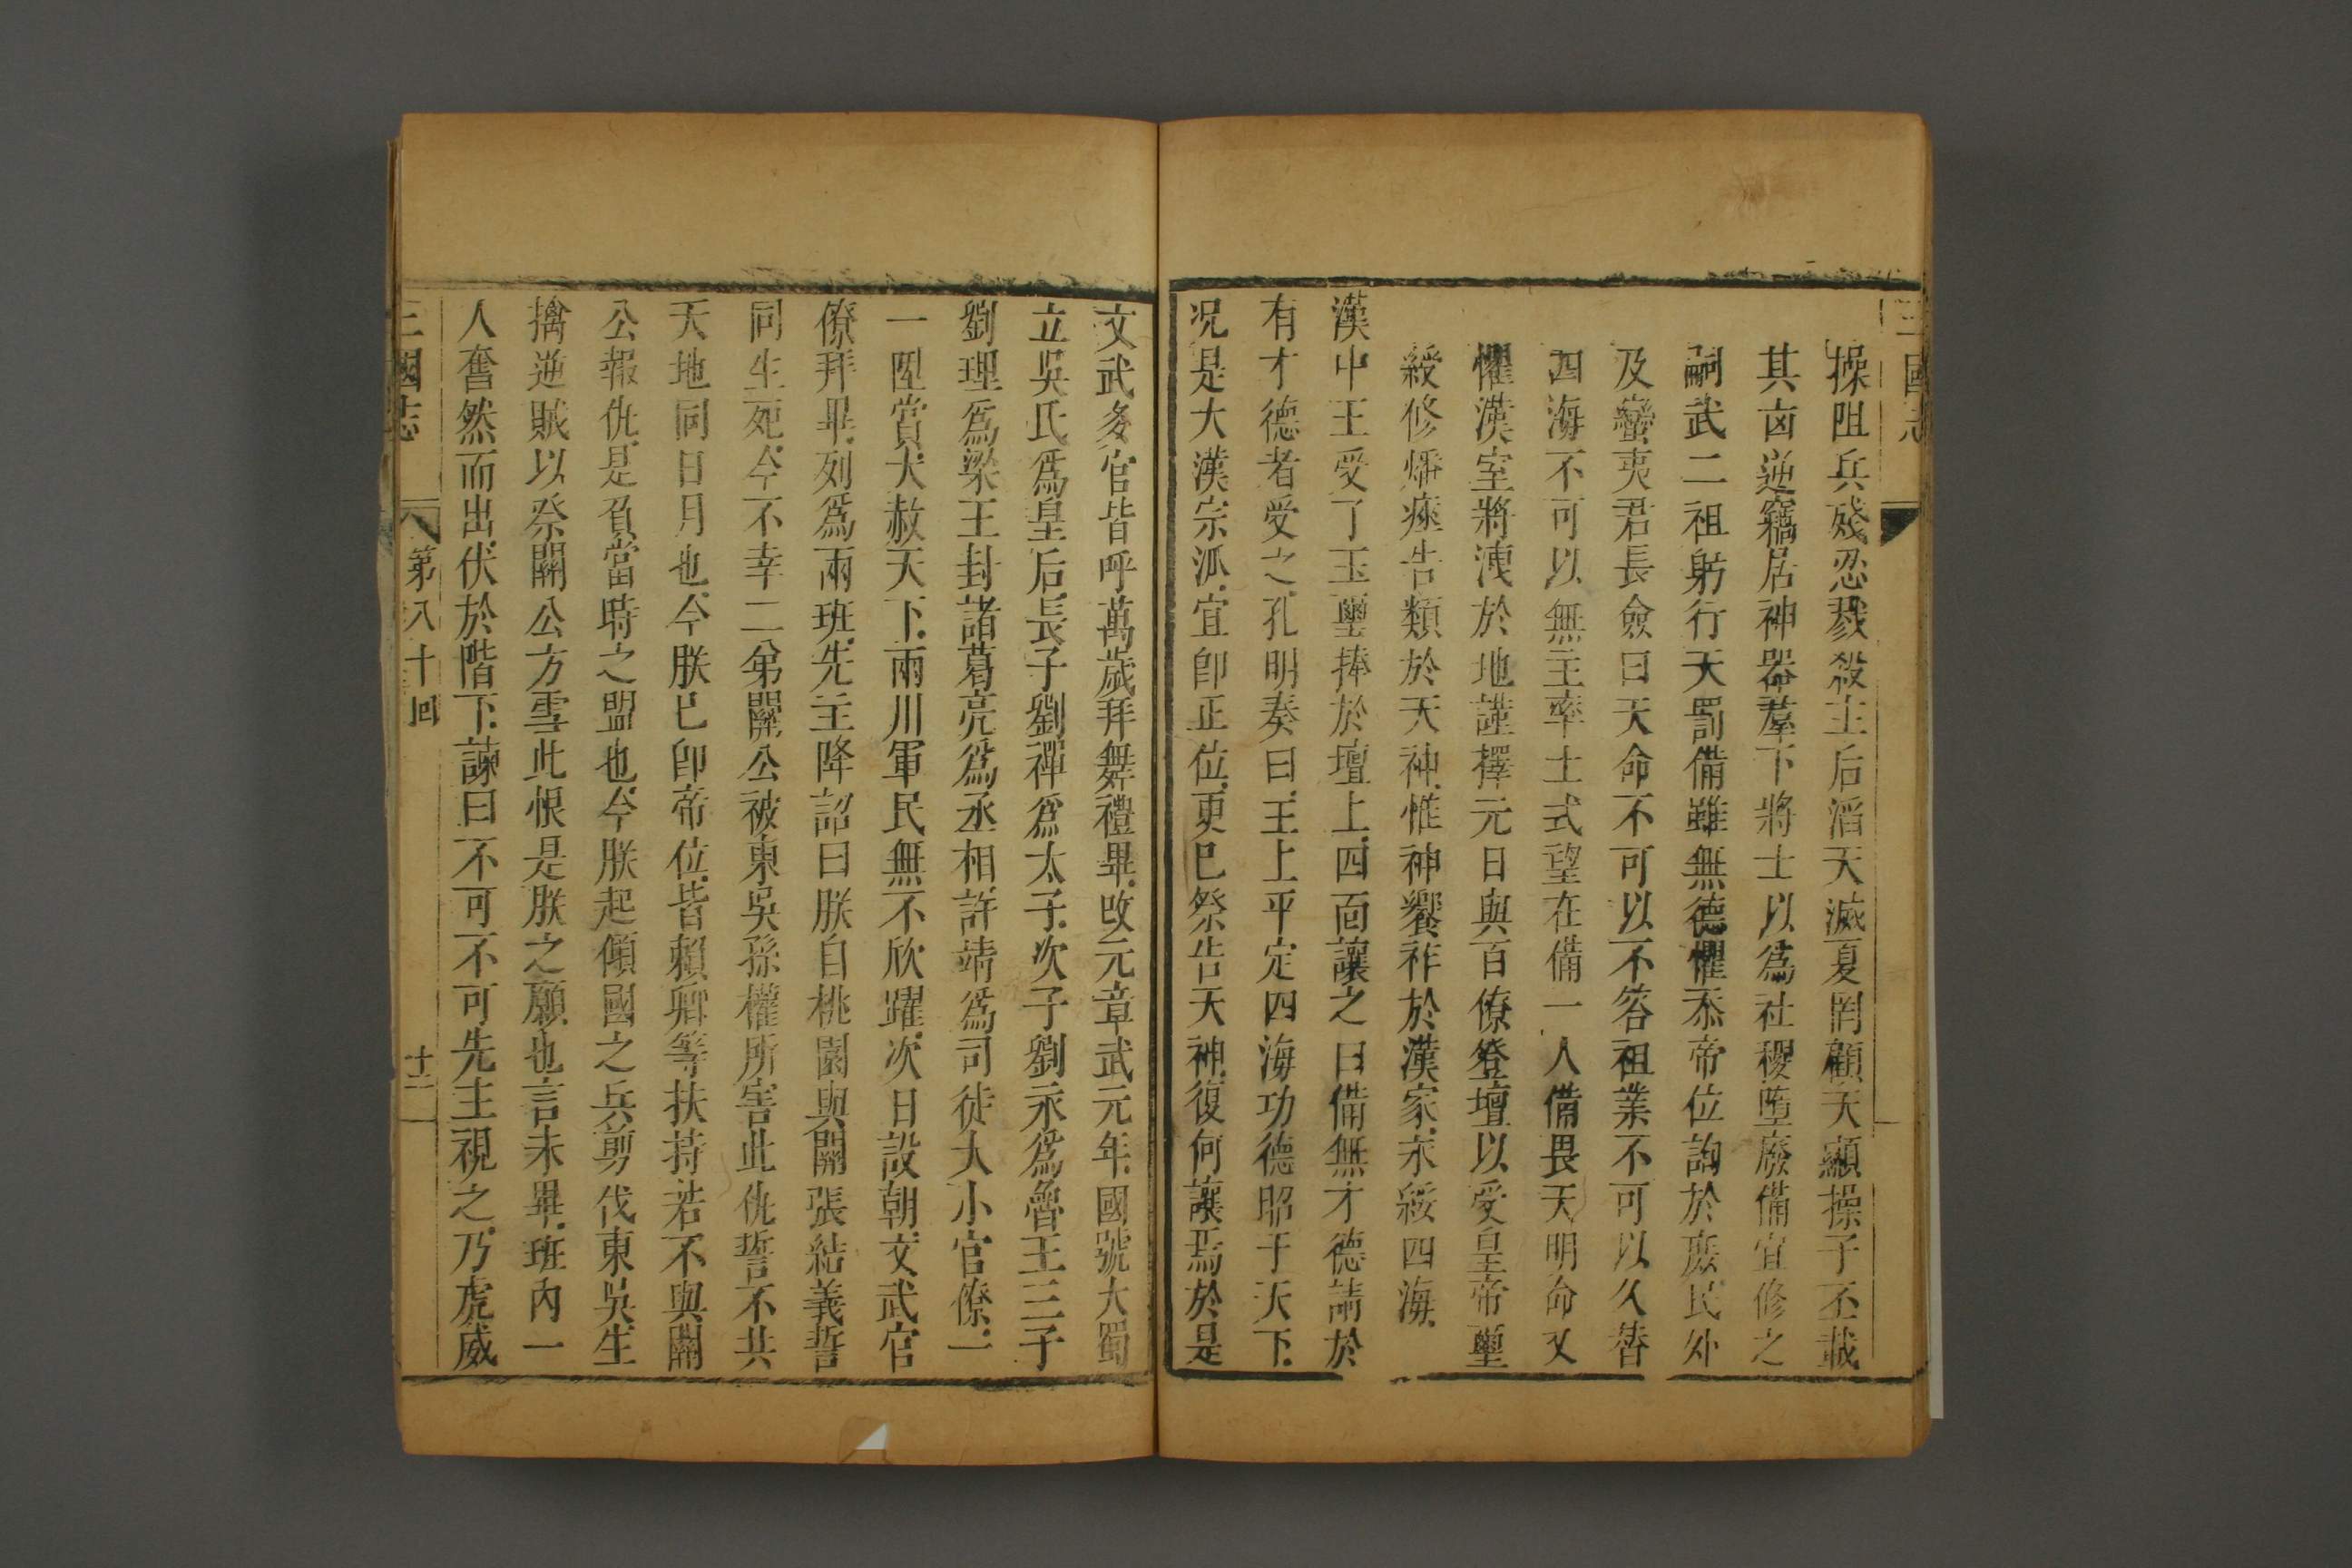 三國志
操阻兵殘忍戮殺主后滔天滅夏罔顧天顯操子丕載
其凶逆竊居神器羣下將士以爲社稷墮廢備宜修之
嗣武二祖躬行天罰備雖無德懼忝帝位詢於庶民外
及蠻夷君長僉曰天命不可以不答祖業不可以久替
四海不可以無主率土式望在備一人備畏天明命又
懼漢室將洩於地謹擇元日與百僚登壇以受皇帝璽
綬修燔瘞告類於天神惟神饗祚於漢家永綏四海
漢中王受了玉璽捧於壇上四面讓之曰備無才德請於
有才德者受之孔明奏曰王上平定四海功德昭于天下
况是大漢宗派宜卽正位更已祭告天神復何讓焉於是
文武多官皆呼萬歲拜舞禮畢改元章武元年國號大蜀
立吳氏爲皇后長子劉禪爲太子次子劉永爲魯王三子
劉理爲梁王封諸葛亮爲丞相許靖爲司徒大小官僚一
一陞賞大赦天下兩川軍民無不欣躍次日設朝文武官
僚拜畢列爲兩班先主降詔曰朕自桃園與關張結義誓
同生死今不幸二弟關公被東吳孫權所害此仇誓不共
天地同日月也今朕已卽帝位皆賴卿等扶持若不與關
公報仇是負當時之盟也今朕起傾國之兵剪伐東吳生
擒逆賊以祭關公方雪此恨是朕之願也言未畢班內一
人奮然而出伏於階下諫曰不可不可先主視之乃虎威
三國志 第八十回 十二